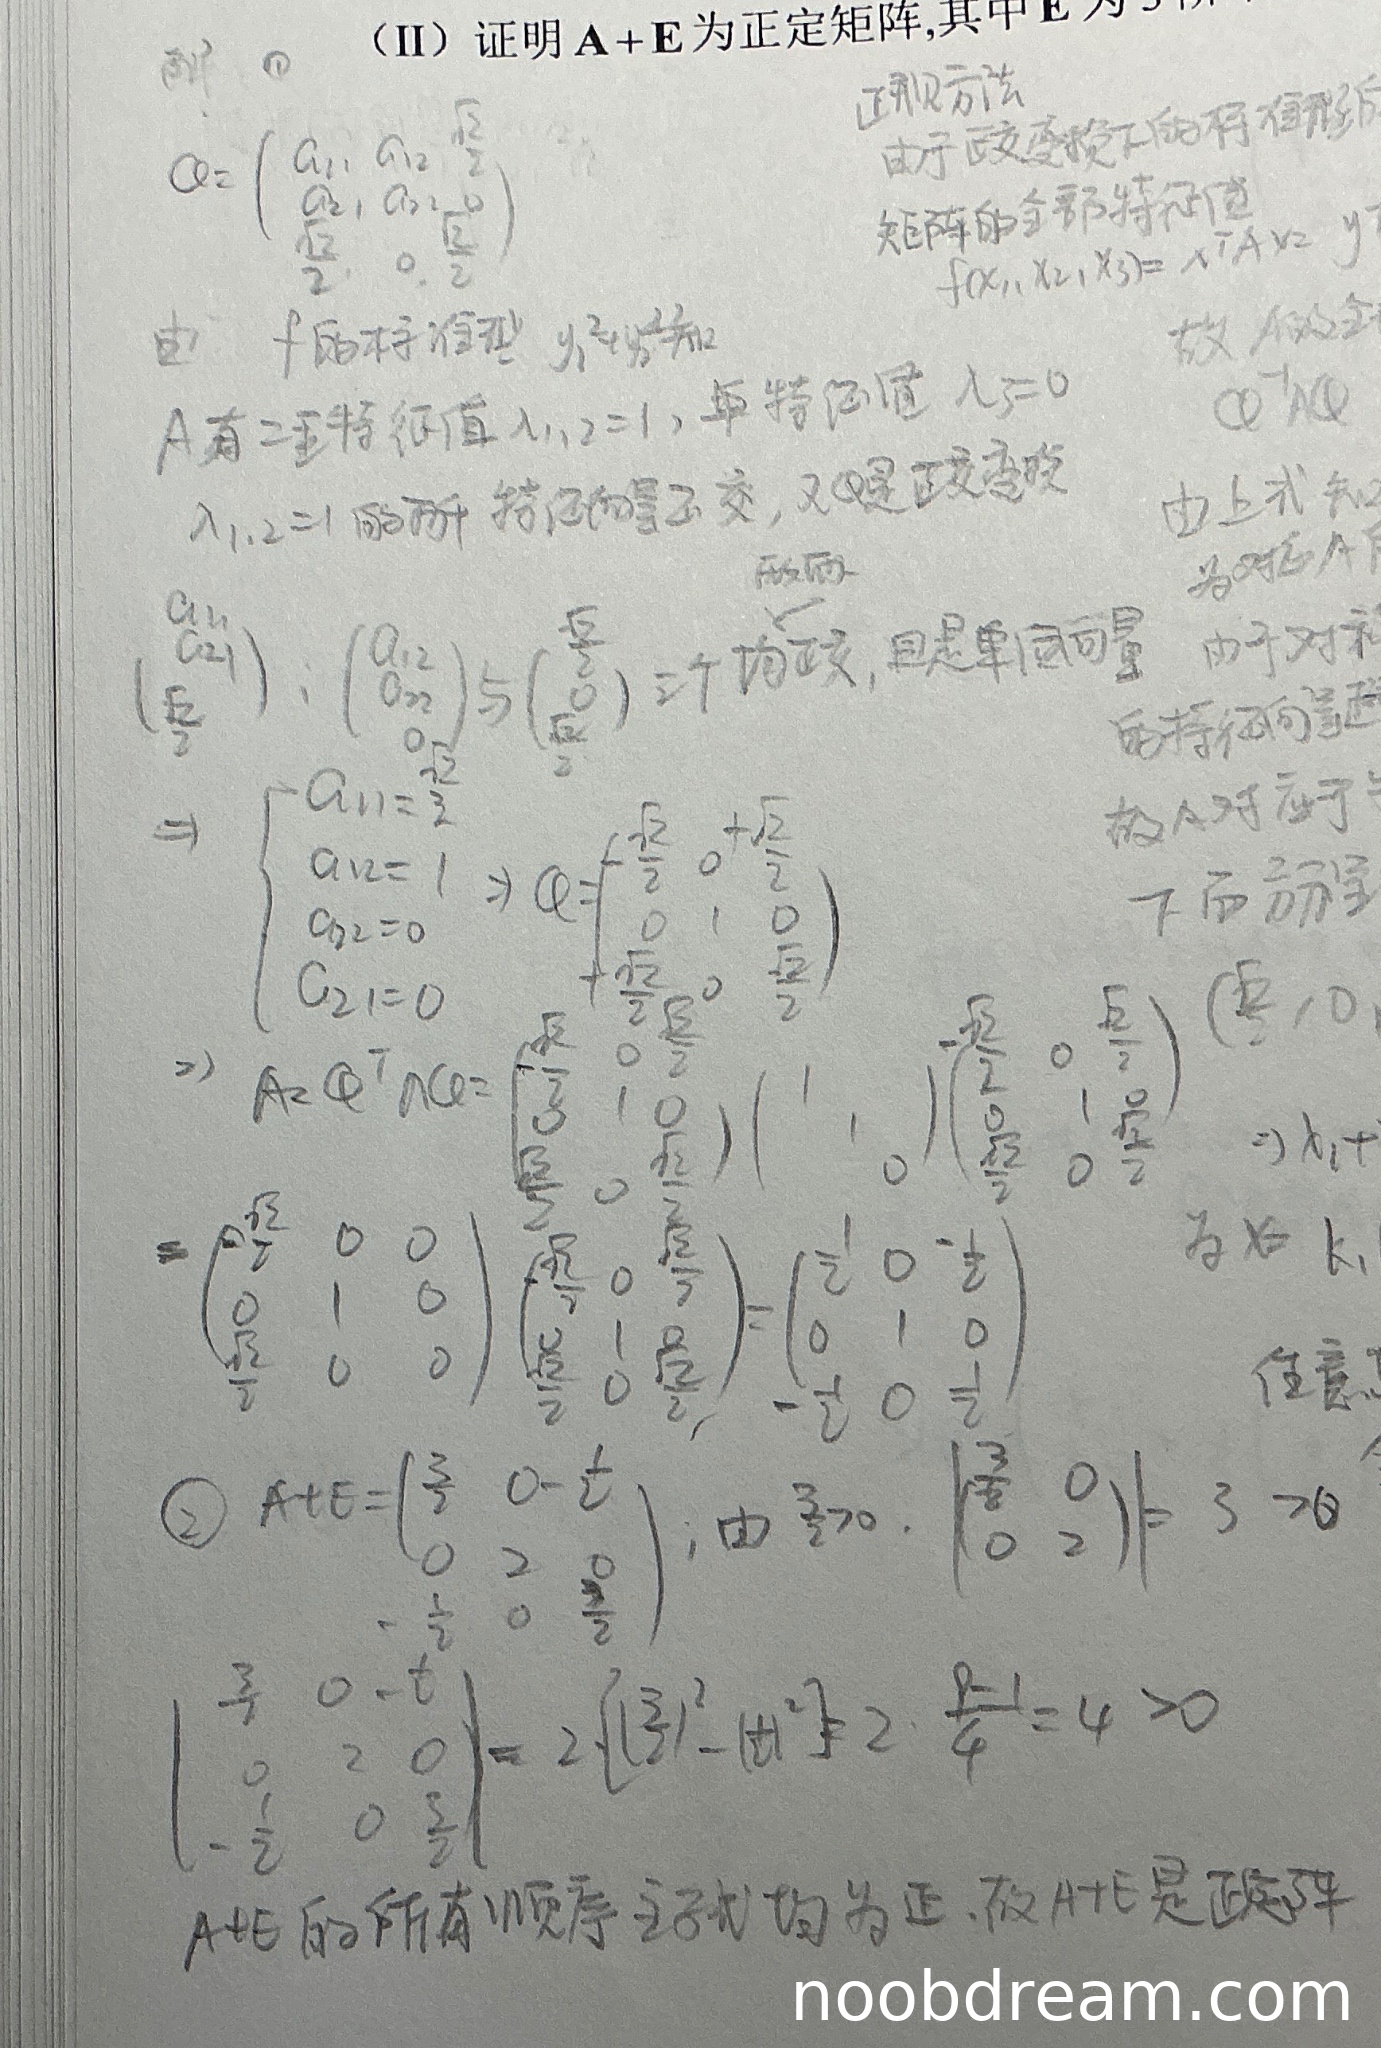 （II）证明 A+E 为正定矩阵,其中 E 为 3 阶
解 ①
Q= ( a11 a12 √2/2
a21 a22 0
√2/2 0 √2/2 )
由 f的标准型 y1²+y2²知
A有二重特征值 λ1,2=1, 单特征值 λ3=0
λ1,2=1 的两个特征向量正交, 又Q是正交变换
两两
(a11 a21 √2/2), (a12 a22 0) 与 (√2/2 0 √2/2) 三个均正交, 且是单位向量
⇒ { a11=√2/2
a12=1
a22=0
a21=0
⇒ Q= ( -√2/2 0 +√2/2
0 1 0
+√2/2 0 √2/2 )
⇒ A=QᵀΛQ= ( -√2/2 0 √2/2
0 1 0
√2/2 0 √2/2 ) ( 1
1
0 ) ( -√2/2 0 √2/2
0 1 0
√2/2 0 √2/2 )
= ( -√2/2 0 0
0 1 0
√2/2 0 0 ) ( -√2/2 0 √2/2
0 1 0
√2/2 0 √2/2 ) = ( 1/2 0 -1/2
0 1 0
-1/2 0 1/2 )
② A+E= ( 3/2 0 -1/2
0 2 0
-1/2 0 3/2 ) ; 由 3/2>0. |( 3/2 0
0 2 )| = 3 >0
| 3/2 0 -1/2
0 2 0
-1/2 0 3/2 | = 2·[(3/2)²-(1/2)²]=2·(9-1)/4=4>0
A+E 的所有顺序主子式均为正.故A+E是正定阵
正规方法
由于正交变换下的标准形
矩阵的全部特征值
f(x1,x2,x3)=xᵀAx= yᵀ
故 A的全
Q⁻¹AQ
由上式知
为对应A
由于对称
的特征向量
故A对应于
下面 方程
(√2/2, 0,
⇒ x1+
为 x= k1
任意
noobdream.com